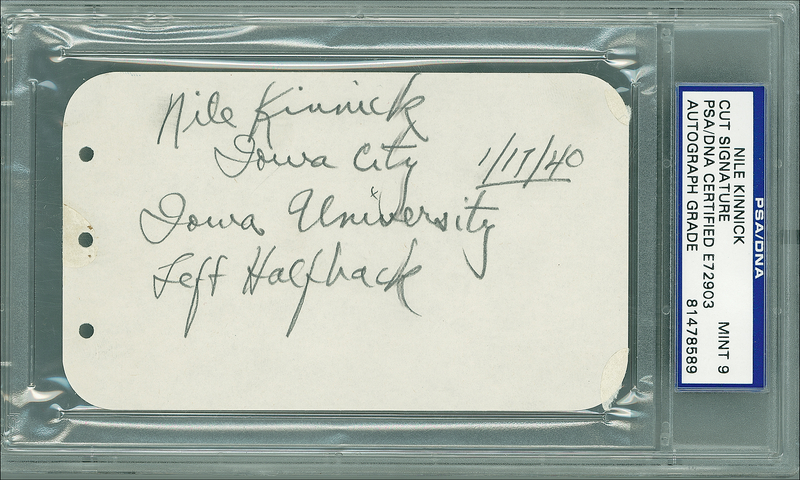 Nile Kinnick
Iowa City 1/17/40
Iowa University
Left Halfback
PSA/DNA
NILE KINNICK
CUT SIGNATURE MINT 9
PSA/DNA CERTIFIED E72903
AUTOGRAPH GRADE 81478589